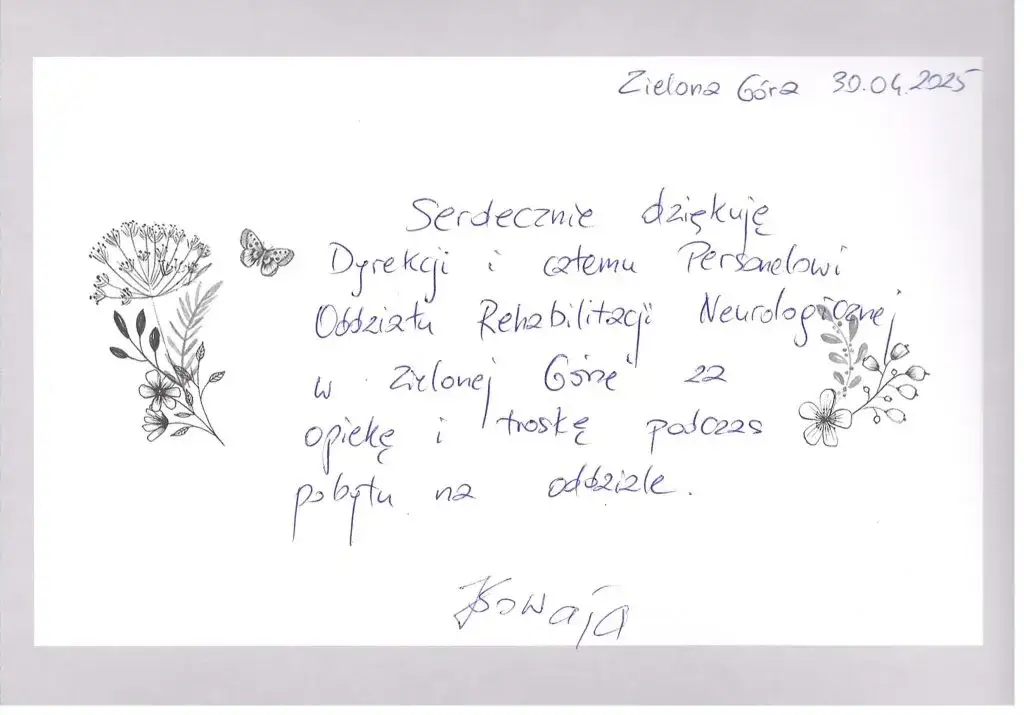 Zielona Góra 30.04.2025
Serdecznie dziękuję
Dyrekcji i całemu Personelowi
Oddziału Rehabilitacji Neurologicznej
w Zielonej Górze za
opiekę i troskę podczas
pobytu na oddziale.